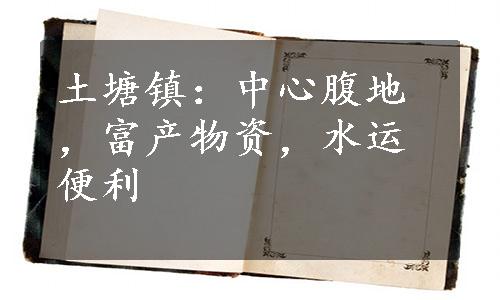 土塘镇：中心腹地
，富产物资，水运
便利